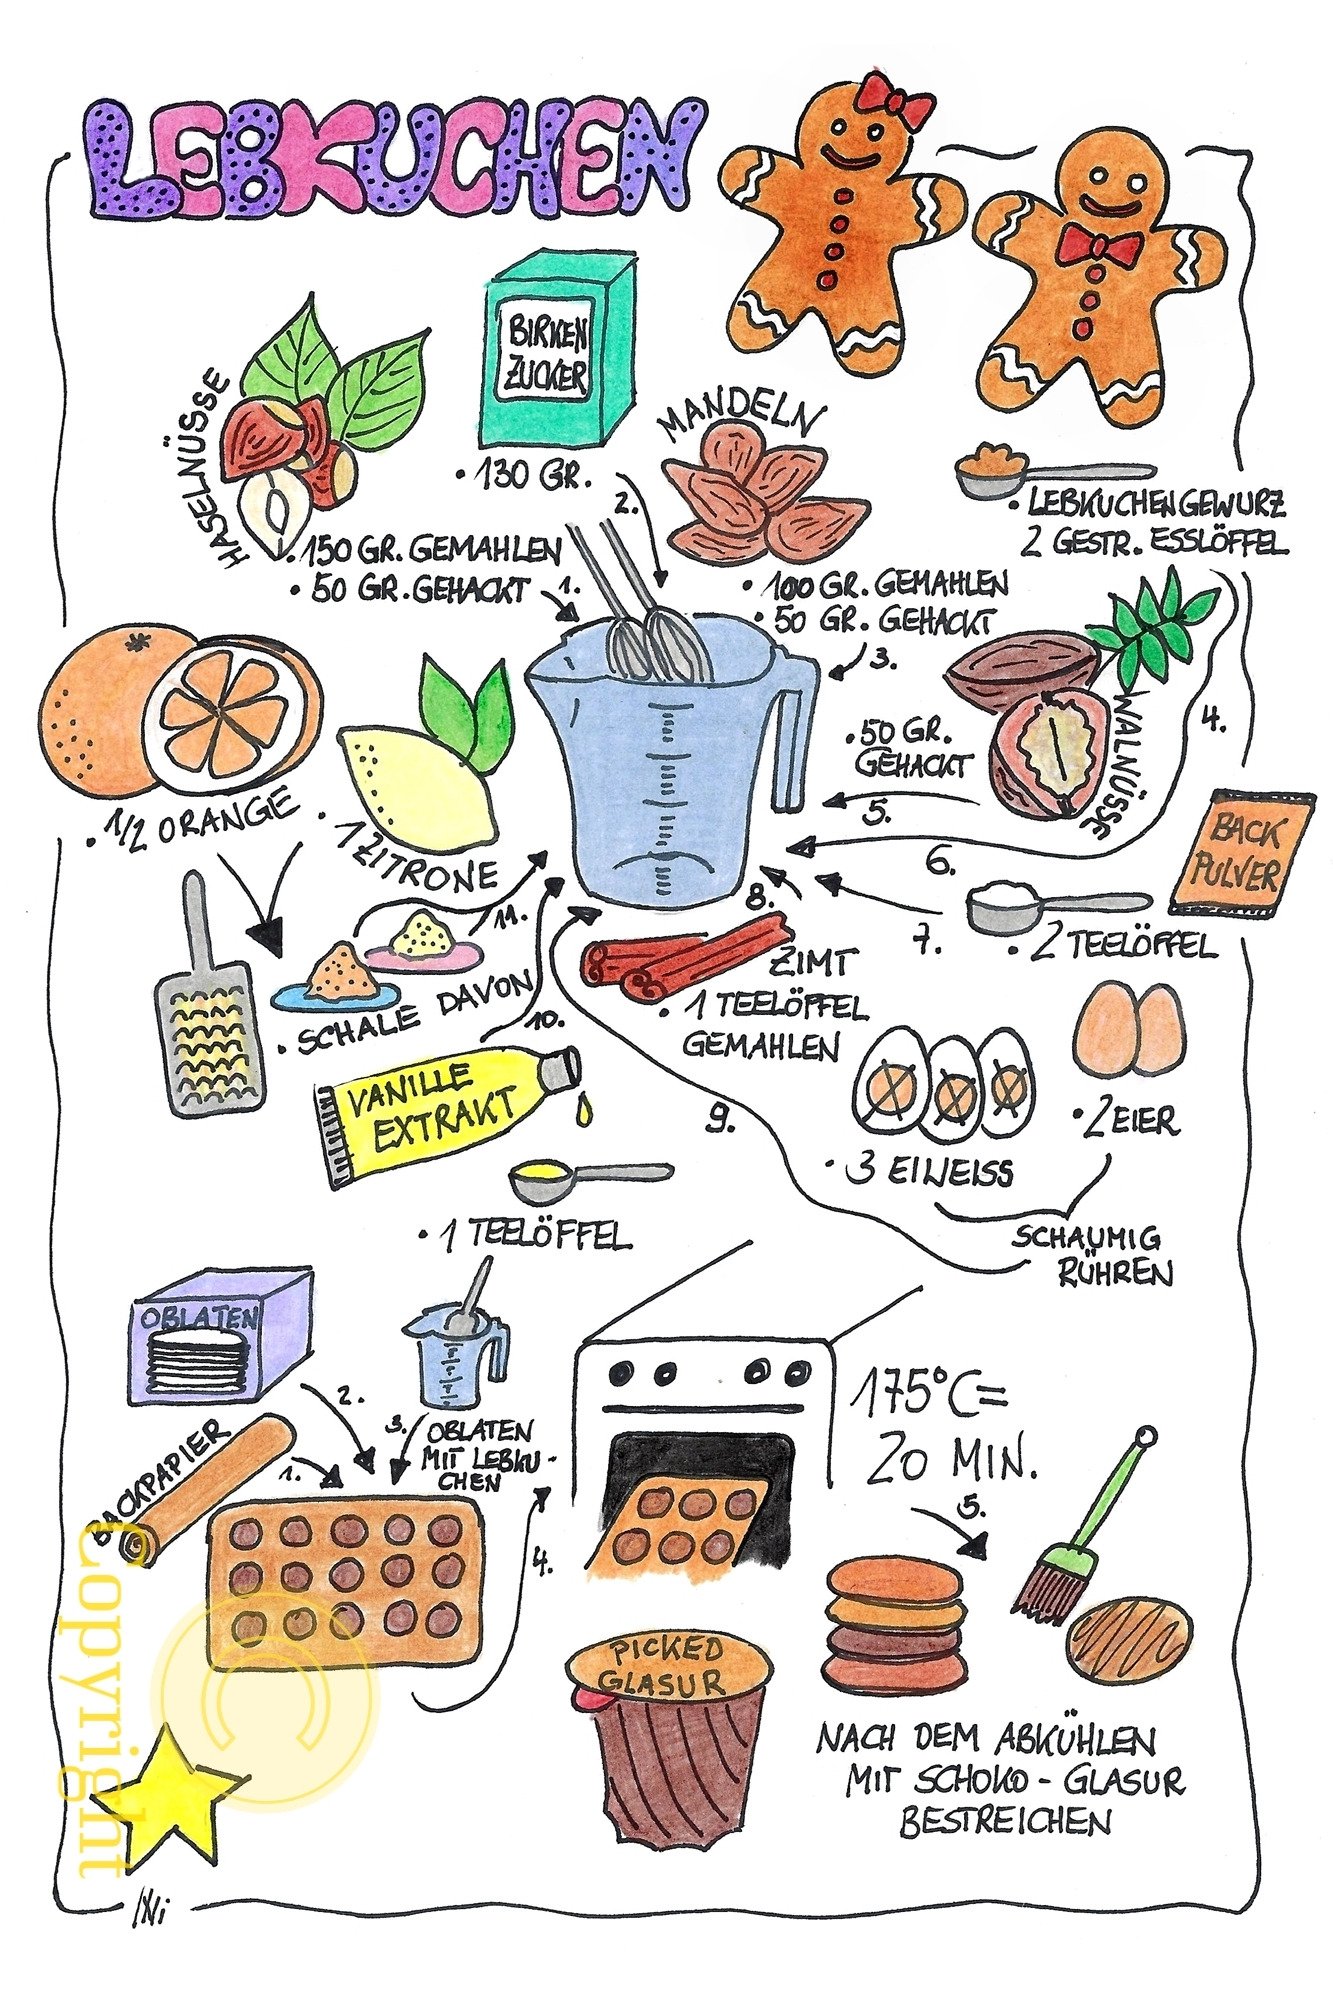 LEBKUCHEN
BIRKEN
ZUCKER
• 130 GR.
2.
HASELNÜSSE
• 150 GR. GEMAHLEN
• 50 GR. GEHACKT
1.
MANDELN
• 100 GR. GEMAHLEN
• 50 GR. GEHACKT
3.
• LEBKUCHENGEWÜRZ
2 GESTR. ESSLÖFFEL
4.
WALNÜSSE
• 50 GR.
GEHACKT
5.
6.
BACK
PULVER
7.
• 2 TEELÖFFEL
• 1/2 ORANGE
• 1 ZITRONE
11.
• SCHALE DAVON
10.
8.
ZIMT
• 1 TEELÖFFEL
GEMAHLEN
VANILLE
EXTRAKT
• 1 TEELÖFFEL
9.
• 3 EIWEISS
• 2 EIER
SCHAUMIG
RÜHREN
OBLATEN
2.
BACKPAPIER
1.
3.
OBLATEN
MIT LEBKU-
CHEN
4.
175°C=
20 MIN.
5.
PICKED
GLASUR
NACH DEM ABKÜHLEN
MIT SCHOKO - GLASUR
BESTREICHEN
Copyright
©